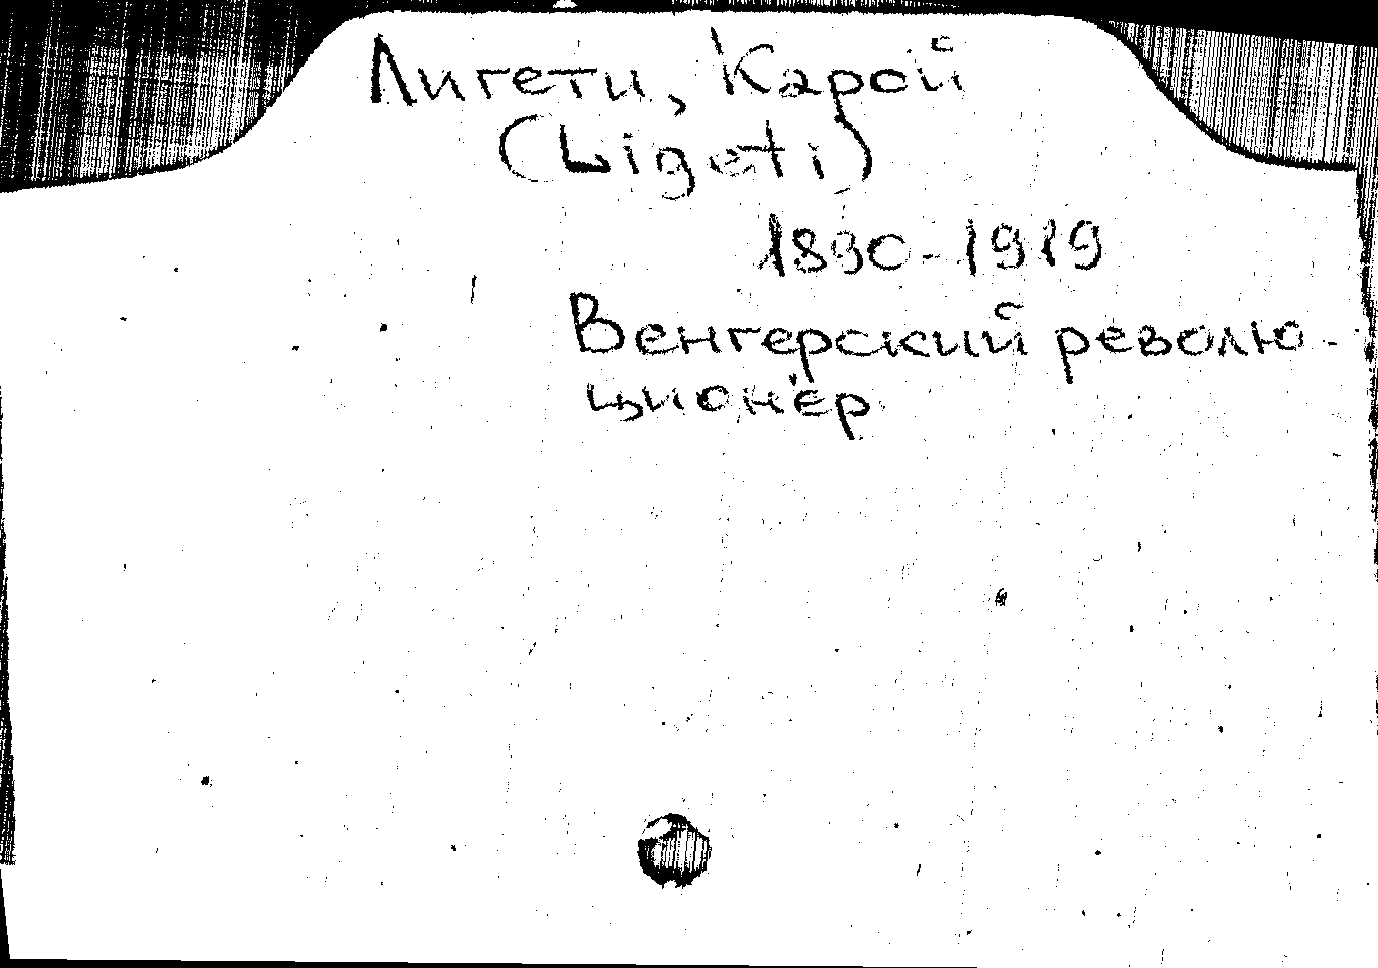 Лигети, Карой
(Ligeti)
1890-1919
Венгерский револю-
ционер